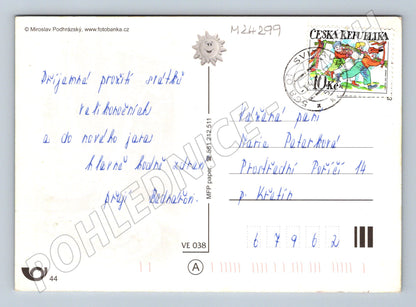 © Miroslav Podhrázský, www.fotobanka.cz
M24299
ČESKÁ REPUBLIKA
10 Kč
Příjemné prožití svátků
velikonočních
a do nového jara
hlavně hodně zdraví
přejí
Vážená paní
Marie Petarková
Prostřední Poříčí 14
p. Křetín
6 7 9 6 2
MFP paper, ☎ 051.212.511
VE 038
A
44
POHLEDNICE